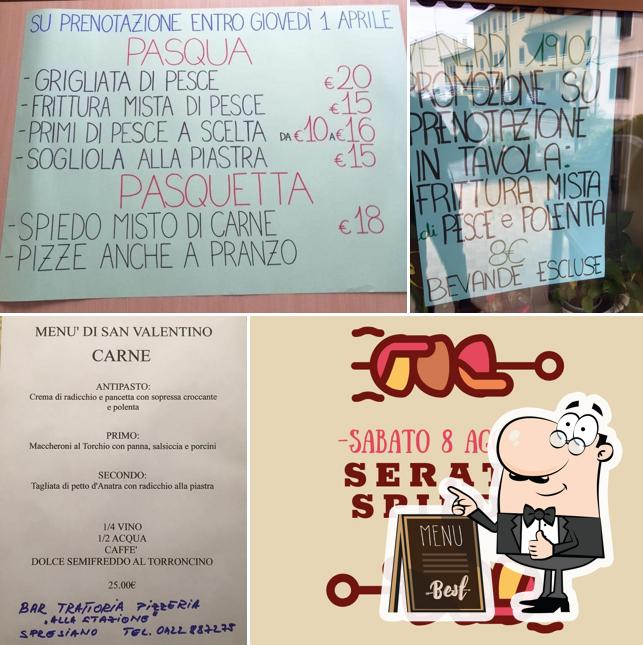 SU PRENOTAZIONE ENTRO GIOVEDÌ 1 APRILE
PASQUA
- GRIGLIATA DI PESCE €20
- FRITTURA MISTA DI PESCE €15
- PRIMI DI PESCE A SCELTA DA €10 A €16
- SOGLIOLA ALLA PIASTRA €15
PASQUETTA
- SPIEDO MISTO DI CARNE €18
- PIZZE ANCHE A PRANZO
VENERDI 19/02
PROMOZIONE SU
PRENOTAZIONE
IN TAVOLA:
FRITTURA MISTA
di PESCE e POLENTA
8€
BEVANDE ESCLUSE
MENU' DI SAN VALENTINO
CARNE
ANTIPASTO:
Crema di radicchio e pancetta con sopressa croccante
e polenta
PRIMO:
Maccheroni al Torchio con panna, salsiccia e porcini
SECONDO:
Tagliata di petto d'Anatra con radicchio alla piastra
1/4 VINO
1/2 ACQUA
CAFFE'
DOLCE SEMIFREDDO AL TORRONCINO
25.00€
BAR TRATTORIA PIZZERIA
"ALLA STAZIONE"
SPRESIANO TEL. 0422 887275
-SABATO 8
SERAT
MENU
Best